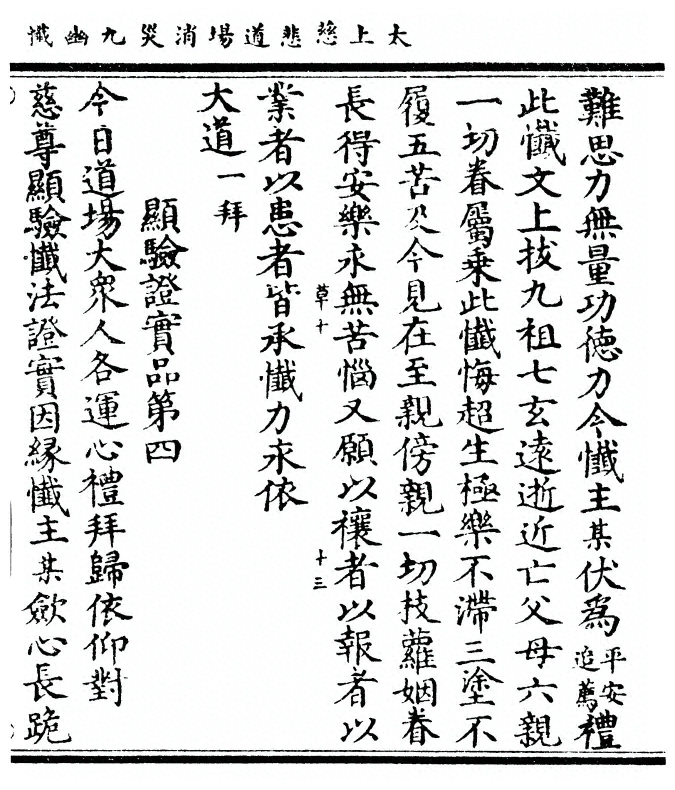 太上慈悲道場消災九幽懺
難思力無量功德力今懺主某伏為平安追薦禮
此懺文上拔九祖七玄遠逝近亡父母六親
一切眷屬乘此懺悔超生極樂不滯三塗不
履五苦及今見在至親傍親一切枝蘿姻眷
長得安樂永無苦惱又願以禳者以報者以
草十
十三
業者以患者皆承懺力永依
大道一拜
顯驗證實品第四
今日道場大眾人各運心禮拜歸依仰對
慈尊顯驗懺法證實因緣懺主某斂心長跪